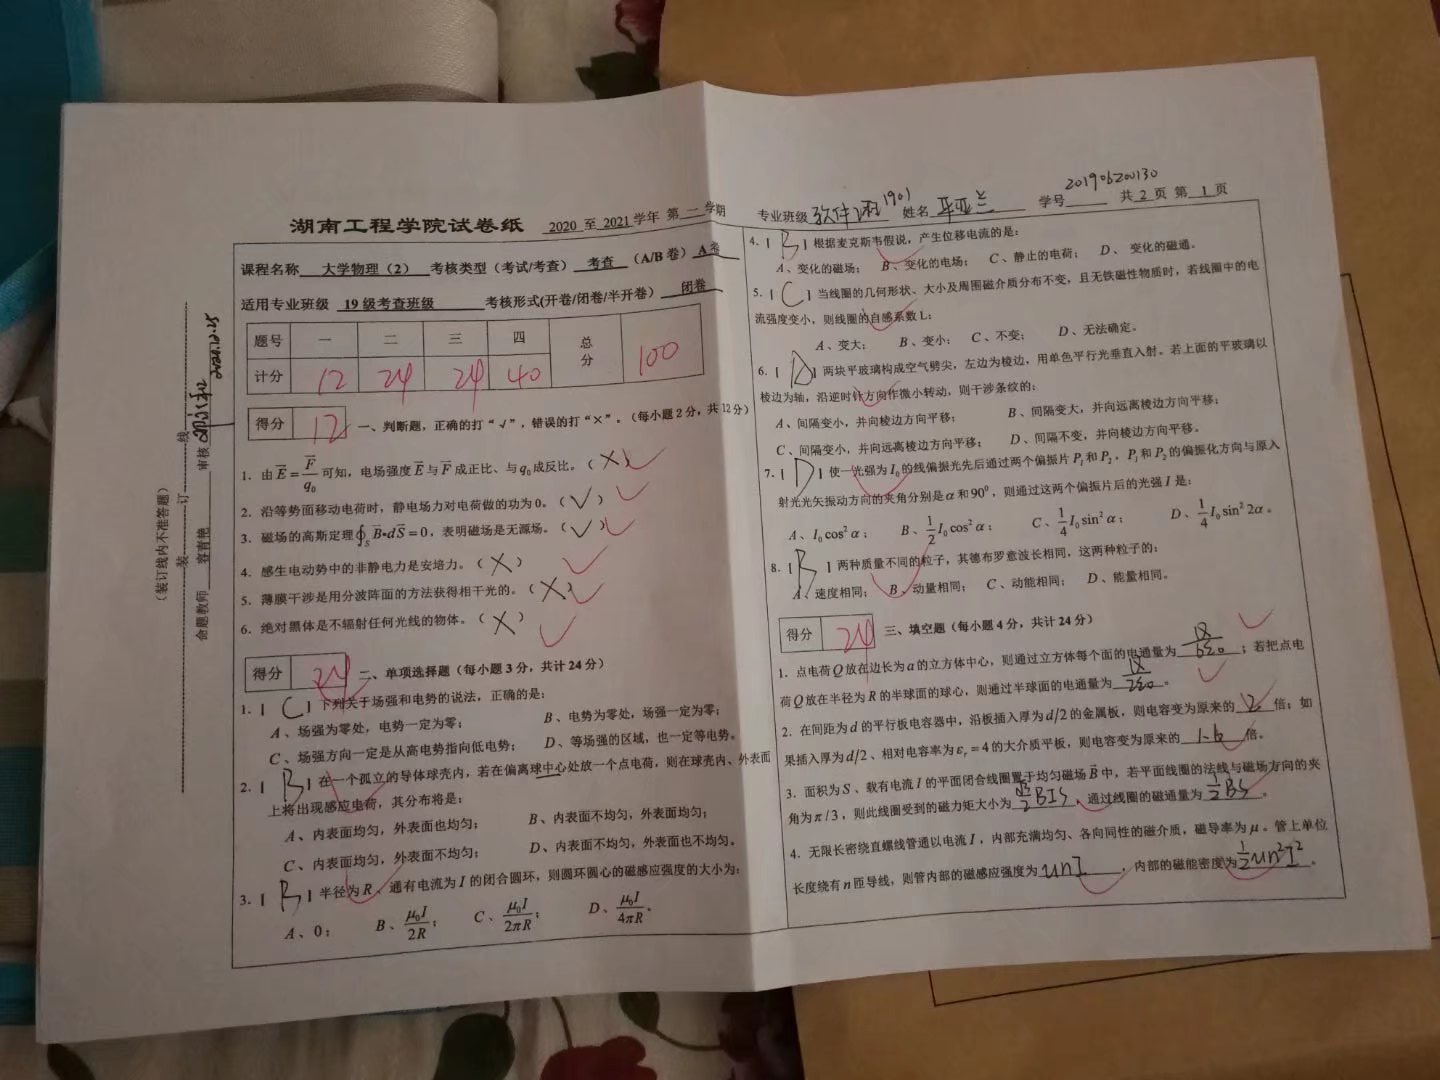 湖南工程学院试卷纸 2020 至 2021 学年 第 一 学期 专业班级 软件工程1901 姓名 学号 201906200130 共 2 页 第 1 页
课程名称 大学物理(2) 考核类型(考试/考查) 考查 (A/B 卷) A 卷
适用专业班级 19 级考查班级 考核形式(开卷/闭卷/半开卷) 闭卷
题号 一 二 三 四 总分
计分 12 24 24 40 100
得分 12 一、判断题,正确的打“√”,错误的打“×”。(每小题 2 分,共 12 分)
1. 由 E = F/q₀ 可知,电场强度 E 与 F 成正比、与 q₀ 成反比。(×)
2. 沿等势面移动电荷时,静电场力对电荷做的功为 0。(√)
3. 磁场的高斯定理 ∮ₛ B•dS = 0,表明磁场是无源场。(√)
4. 感生电动势中的非静电力是安培力。(×)
5. 薄膜干涉是用分波阵面的方法获得相干光的。(×)
6. 绝对黑体是不辐射任何光线的物体。(×)
得分 24 二、单项选择题(每小题 3 分,共计 24 分)
1. [ C ] 下列关于场强和电势的说法,正确的是:
A、场强为零处,电势一定为零; B、电势为零处,场强一定为零;
C、场强方向一定是从高电势指向低电势; D、等场强的区域,也一定等电势。
2. [ B ] 在一个孤立的导体球壳内,若在偏离球中心处放一个点电荷,则在球壳内、外表面
上将出现感应电荷,其分布将是:
A、内表面均匀,外表面也均匀; B、内表面不均匀,外表面均匀;
C、内表面均匀,外表面不均匀; D、内表面不均匀,外表面也不均匀。
3. [ B ] 半径为 R、通有电流为 I 的闭合圆环,则圆环圆心的磁感应强度的大小为:
A、0; B、μ₀I/2R; C、μ₀I/2πR; D、μ₀I/4πR。
4. [ B ] 根据麦克斯韦假说,产生位移电流的是:
A、变化的磁场; B、变化的电场; C、静止的电荷; D、变化的磁通。
5. [ C ] 当线圈的几何形状、大小及周围磁介质分布不变,且无铁磁性物质时,若线圈中的电
流强度变小,则线圈的自感系数 L:
A、变大; B、变小; C、不变; D、无法确定。
6. [ D ] 两块平玻璃构成空气劈尖,左边为棱边,用单色平行光垂直入射。若上面的平玻璃以
棱边为轴,沿逆时针方向作微小转动,则干涉条纹的:
A、间隔变小,并向棱边方向平移; B、间隔变大,并向远离棱边方向平移;
C、间隔变小,并向远离棱边方向平移; D、间隔不变,并向棱边方向平移。
7. [ D ] 使一光强为 I₀ 的线偏振光先后通过两个偏振片 P₁ 和 P₂。P₁ 和 P₂ 的偏振化方向与原入
射光光矢振动方向的夹角分别是 α 和 90⁰,则通过这两个偏振片后的光强 I 是:
A、I₀cos²α; B、½I₀cos²α; C、¼I₀sin²α; D、¼I₀sin²2α。
8. [ B ] 两种质量不同的粒子,其德布罗意波长相同,这两种粒子的:
A、速度相同; B、动量相同; C、动能相同; D、能量相同。
得分 24 三、填空题(每小题 4 分,共计 24 分)
1. 点电荷 Q 放在边长为 a 的立方体中心,则通过立方体每个面的电通量为 Q/6ε₀ ;若把点电
荷 Q 放在半径为 R 的半球面的球心,则通过半球面的电通量为 Q/2ε₀ 。
2. 在间距为 d 的平行板电容器中,沿板插入厚为 d/2 的金属板,则电容变为原来的 2 倍;如
果插入厚为 d/2、相对电容率为 εᵣ = 4 的大介质平板,则电容变为原来的 1.6 倍。
3. 面积为 S、载有电流 I 的平面闭合线圈置于均匀磁场 B 中,若平面线圈的法线与磁场方向的夹
角为 π/3,则此线圈受到的磁力矩大小为 √3/2 BIS ,通过线圈的磁通量为 ½BS 。
4. 无限长密绕直螺线管通以电流 I,内部充满均匀、各向同性的磁介质,磁导率为 μ。管上单位
长度绕有 n 匝导线,则管内部的磁感应强度为 μnI ,内部的磁能密度为 ½μn²I² 。
(装订线内不准答题)
装 订 线
命题教师 容青艳 审核 2020.12.25